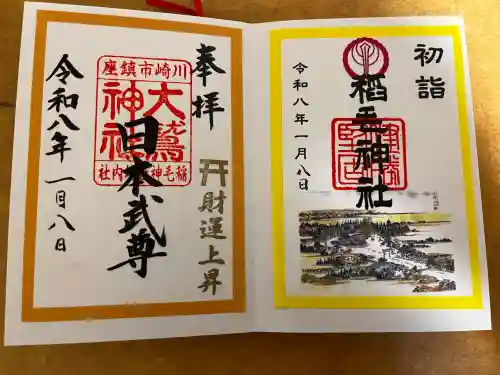 初詣
稲毛神社
令和八年一月八日
奉拝
川崎市鎮座
大鷲神社
稲毛神社境内社
日本武尊
財運上昇
令和八年一月八日